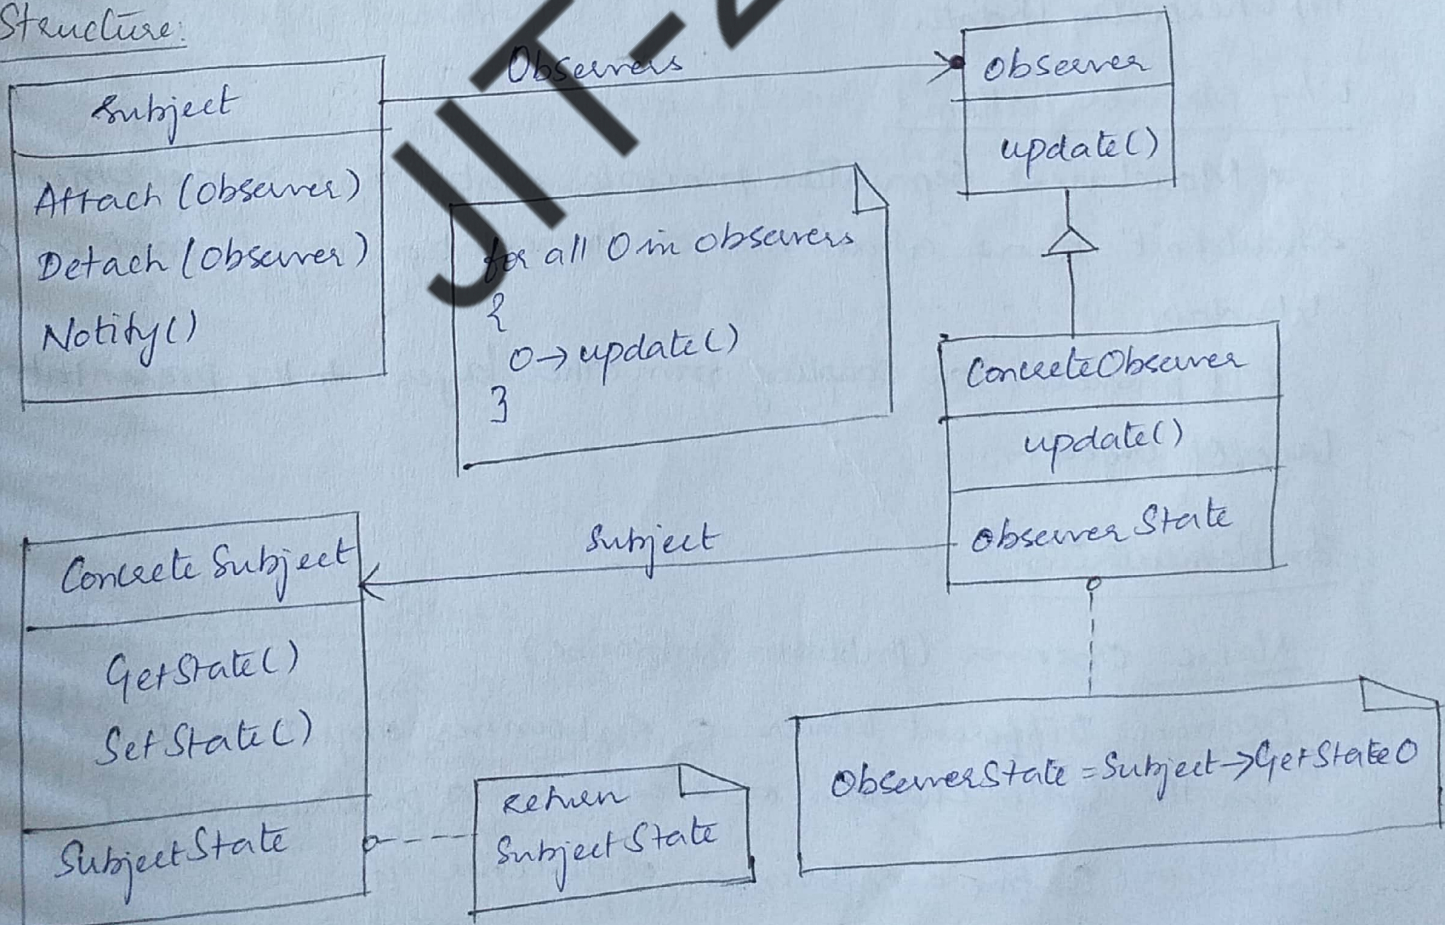 Structure:
Subject
Attach (Observer)
Detach (Observer)
Notify()
Observers
Observer
update()
for all O in observers
{
O→update()
}
ConcreteObserver
update()
Observer State
Subject
Concrete Subject
GetState()
SetState()
SubjectState
return
Subject State
ObserverState = Subject→GetState()
JIT-2